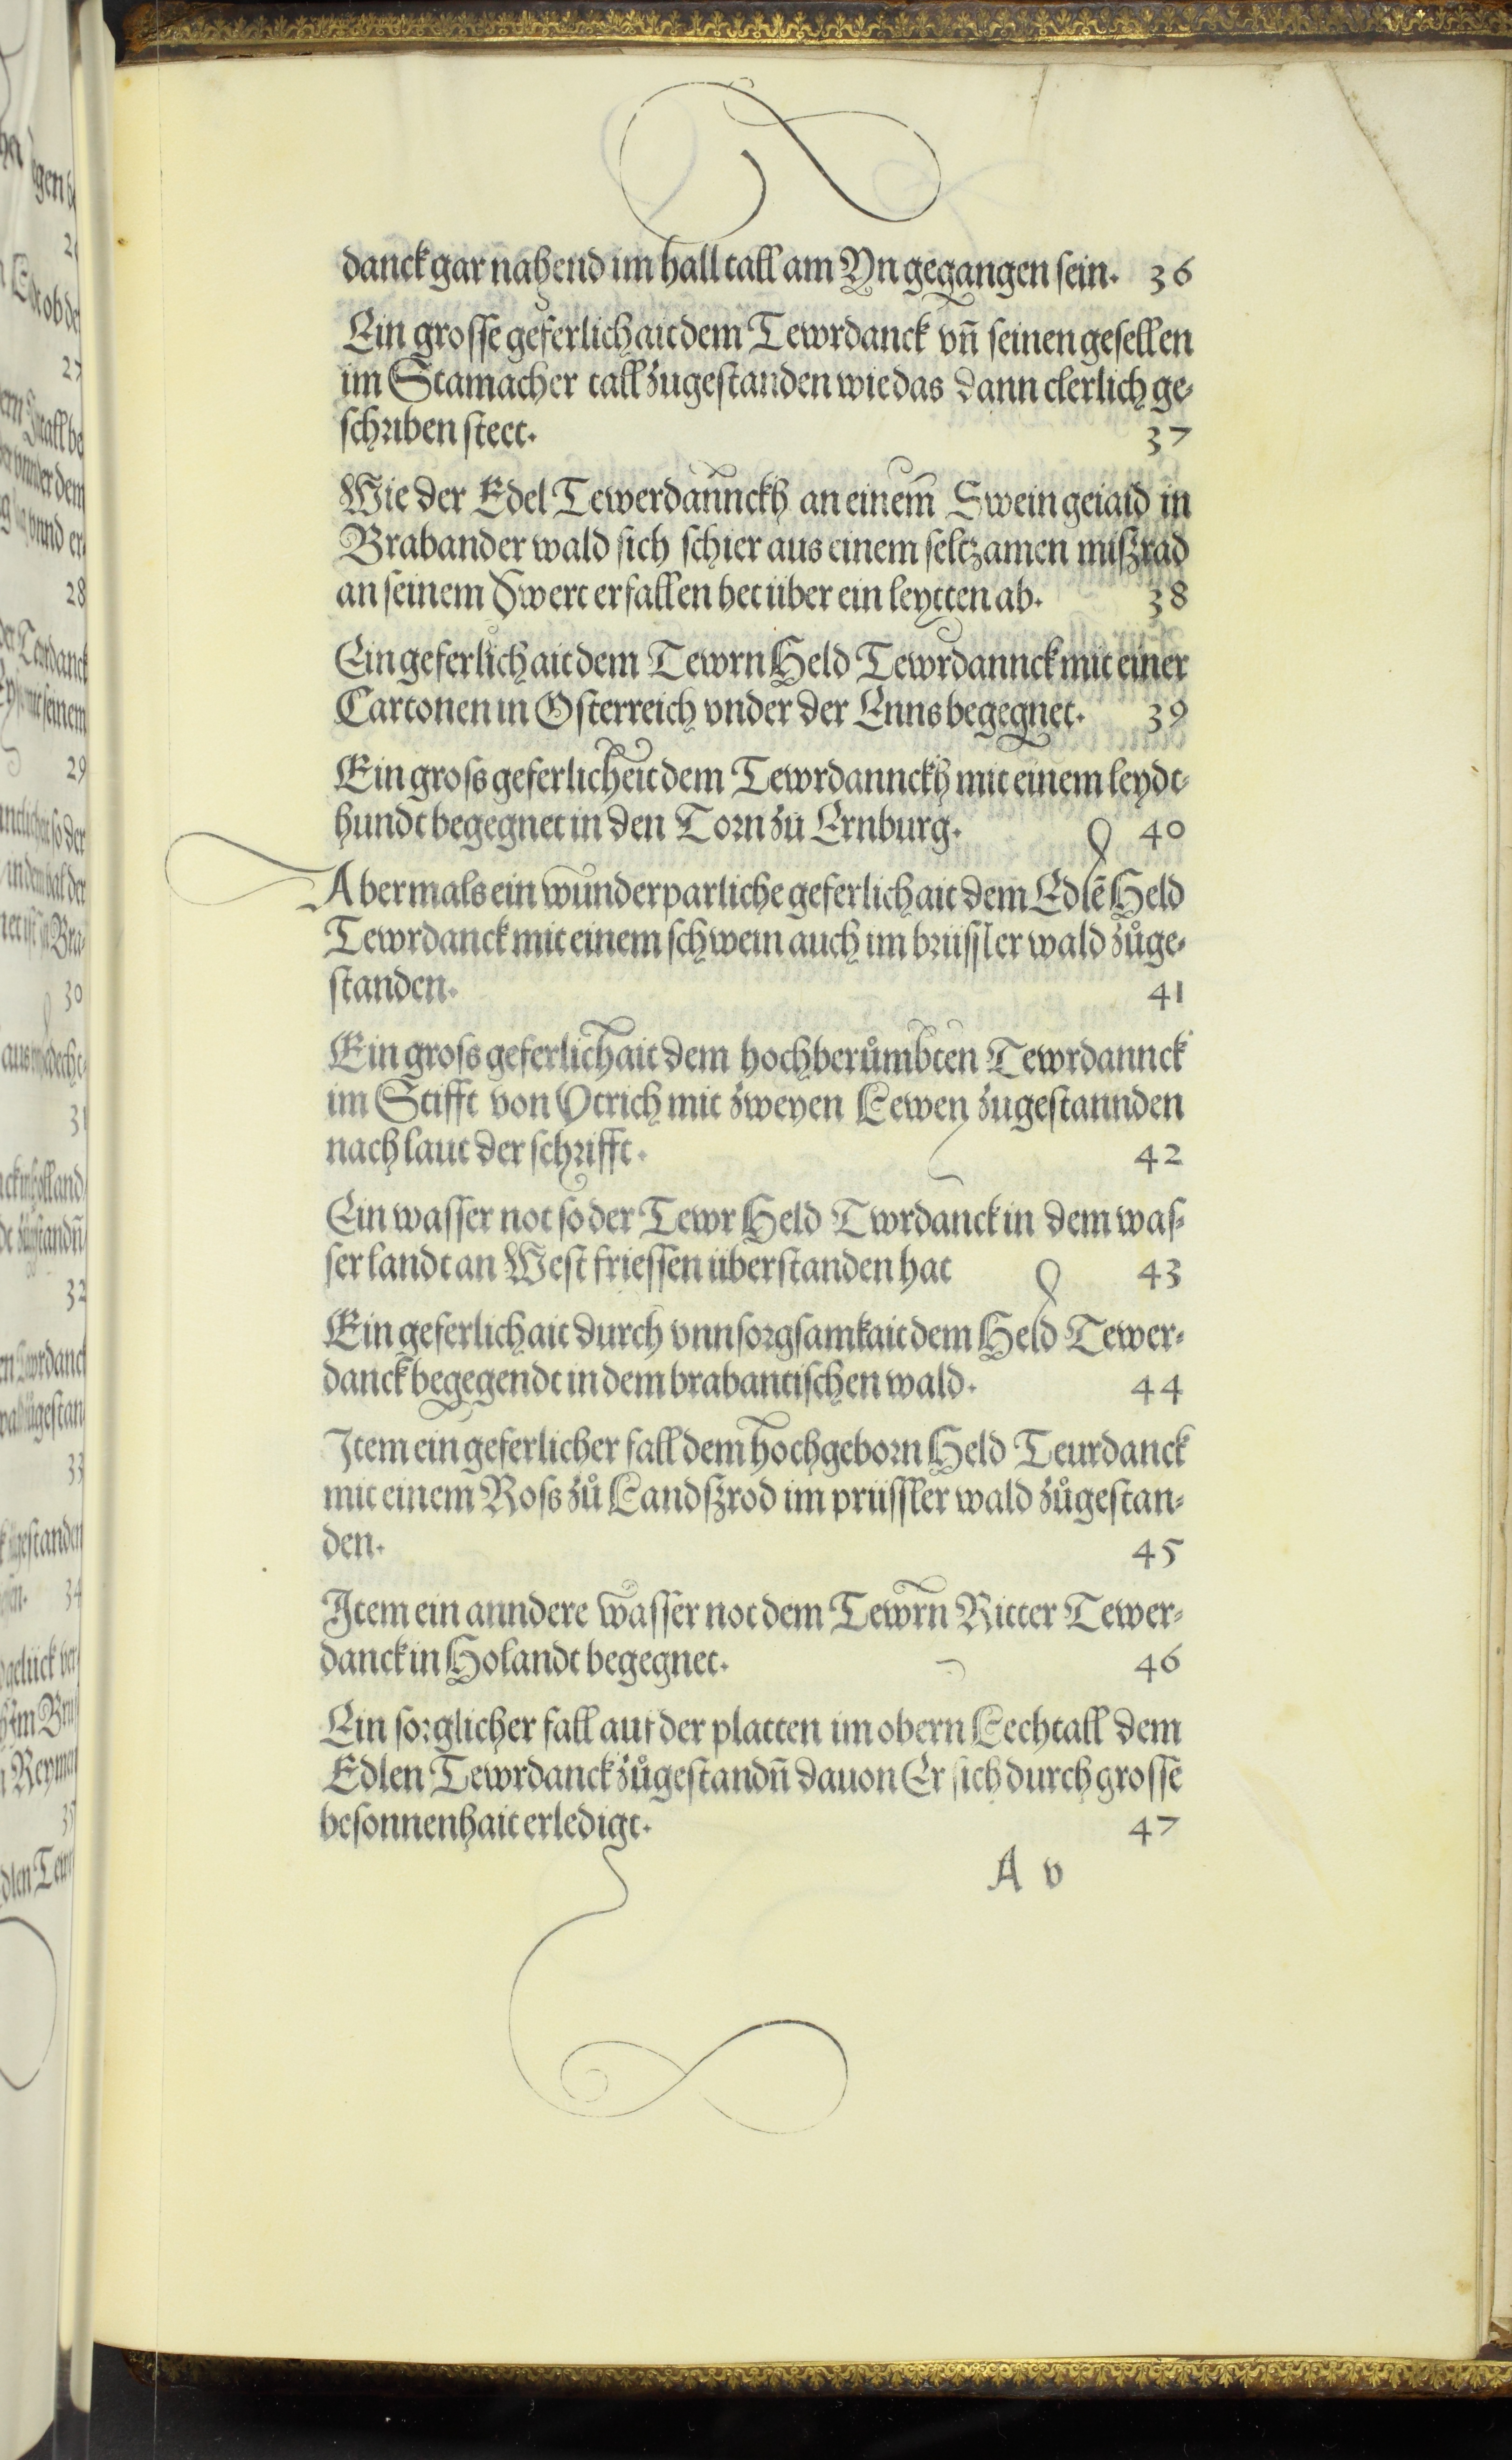 danck gar nahend im hall tall am Yn gegangen sein. 36
Ein grosse geferlichait dem Tewrdanck vn̄ seinen gesellen
im Stamacher tall zugestanden wie das dann clerlich ge-
schriben steet. 37
Wie der Edel Tewerdannckh an einem Swein geiaid in
Brabander wald sich schier aus einem seltzamen miſzrad
an seinem Swert erfallen het über ein leytten ab. 38
Ein geferlichait dem Tewrn Held Tewrdannck mit einer
Cartonen in Osterreich vnder der Enns begegnet. 39
Ein gross geferlicheit dem Tewrdannckh mit einem leydt-
hundt begegnet in den Torn zu Ernburg. 40
Abermals ein wunderparliche geferlichait dem Edlē Held
Tewrdanck mit einem schwein auch im brüssler wald zůge-
standen. 41
Ein gross geferlichait dem hochberůmbten Tewrdannck
im Stifft von Otrich mit zweyen Lewen zugestannden
nach laut der schrifft. 42
Ein wasser not so der Tewr Held Twrdanck in dem was-
ser landt an West friessen überstanden hat 43
Ein geferlichait durch vnnsorgsamkait dem Held Tewer-
danck begegendt in dem brabantischen wald. 44
Item ein geferlicher fall dem hochgeborn Held Teurdanck
mit einem Ross zů Landſzrod im prüssler wald zůgestan-
den. 45
Item ein anndere wasser not dem Tewrn Ritter Tewer-
danck in Holandt begegnet. 46
Ein sorglicher fall auf der platten im obern Lechtall dem
Edlen Tewrdanck zůgestandn̄ dauon Er sich durch grosse
besonnenhait erledigt. 47
A v